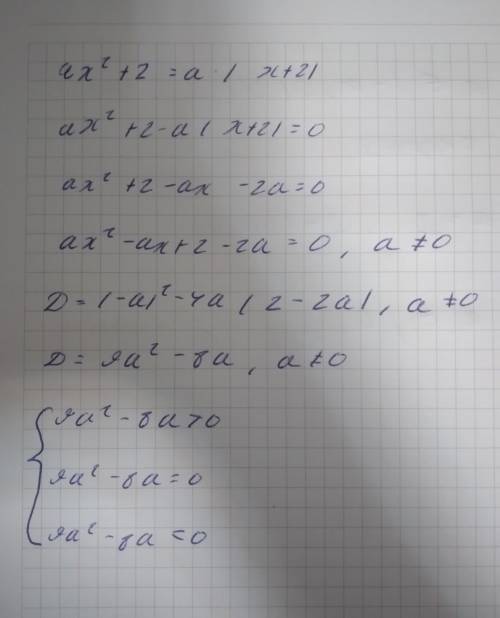 ax² + 2 = a ( x+2)
ax² + 2 - a ( x+2) = 0
ax² + 2 - ax - 2a = 0
ax² - ax + 2 - 2a = 0 , a ≠ 0
D = (-a)² - 4a ( 2 - 2a) , a ≠ 0
D = 9a² - 8a , a ≠ 0
{ 9a² - 8a > 0
9a² - 8a = 0
9a² - 8a < 0